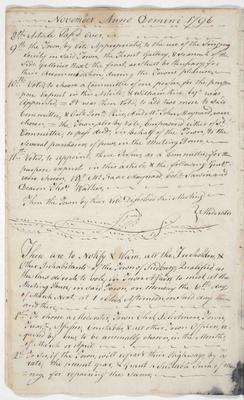 November Anno Domini 1796
8th Article Pass'd Over.
9th the Town, by Vote Appropriated to the use of the Singing
Society in said Town, the Front Gallery, & so much of the
Side Galleries that the front as shall be Necessary for
their Accommodation, during the Towns pleasure,
10th Voted, to choose a Committee of one person for the purpose
Exprest in this Article, & William Rice Esqr was
Appointed — It was then Voted, to add two more to said
Committee, &
Chosen — the Town also by Vote, Impowered the afores'd
Committee, to pass deeds, in behalf of the Town, to the
several purchasers of pews, in the Meeting House,
11 Voted, to appoint three persons as a Committee for the
purpose Exprest in this article & the following Gentn
were chosen, Vizt Mr Isaac Maynard, and
Deacon Thos Walker,
Then the Town by their Vote Dissolved this Meeting
Moderator
These are to Notify & Warn, all the Freeholders, &
Other Inhabitants of the Town of Sudbury Qualified as
the Law directs to Vote in Town Affairs, to meet at the
Meeting House, in said Town, on Monday the 6th day
of March Next, at 1 oClock afternoon, on said day then
and there
1st To choose a Moderator, Town Clerk, Selectmen, Town
Constables, & all other Town Officers, re-
quired by Law to be annually chosen in the Months
of March or April
2d To See, if the Town, will repair their Highways by a
rate, the present year, & grant a Suitable Sum of Mo-
ney for repairing the same,